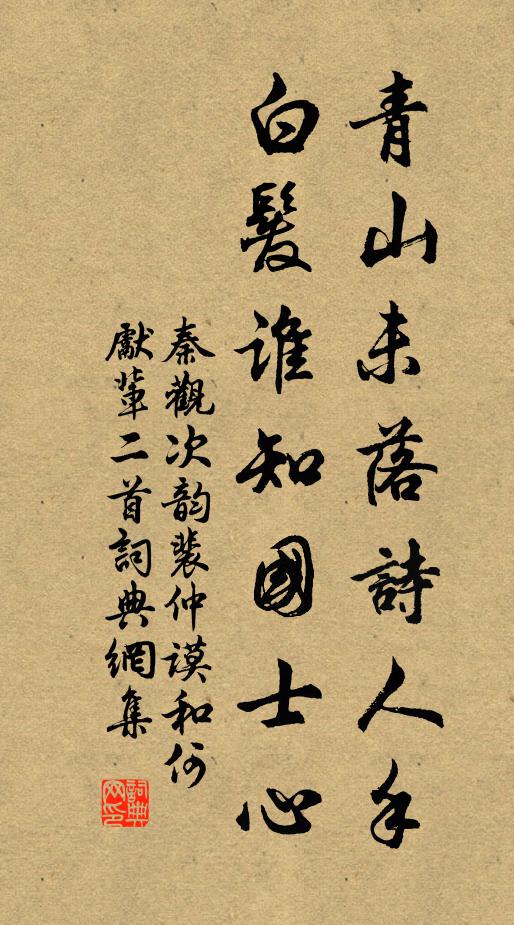 青山未落詩人手
白髮誰知國士心
秦觀次韵裴仲謨和何
獻輩二首詞典網集
詞典網印